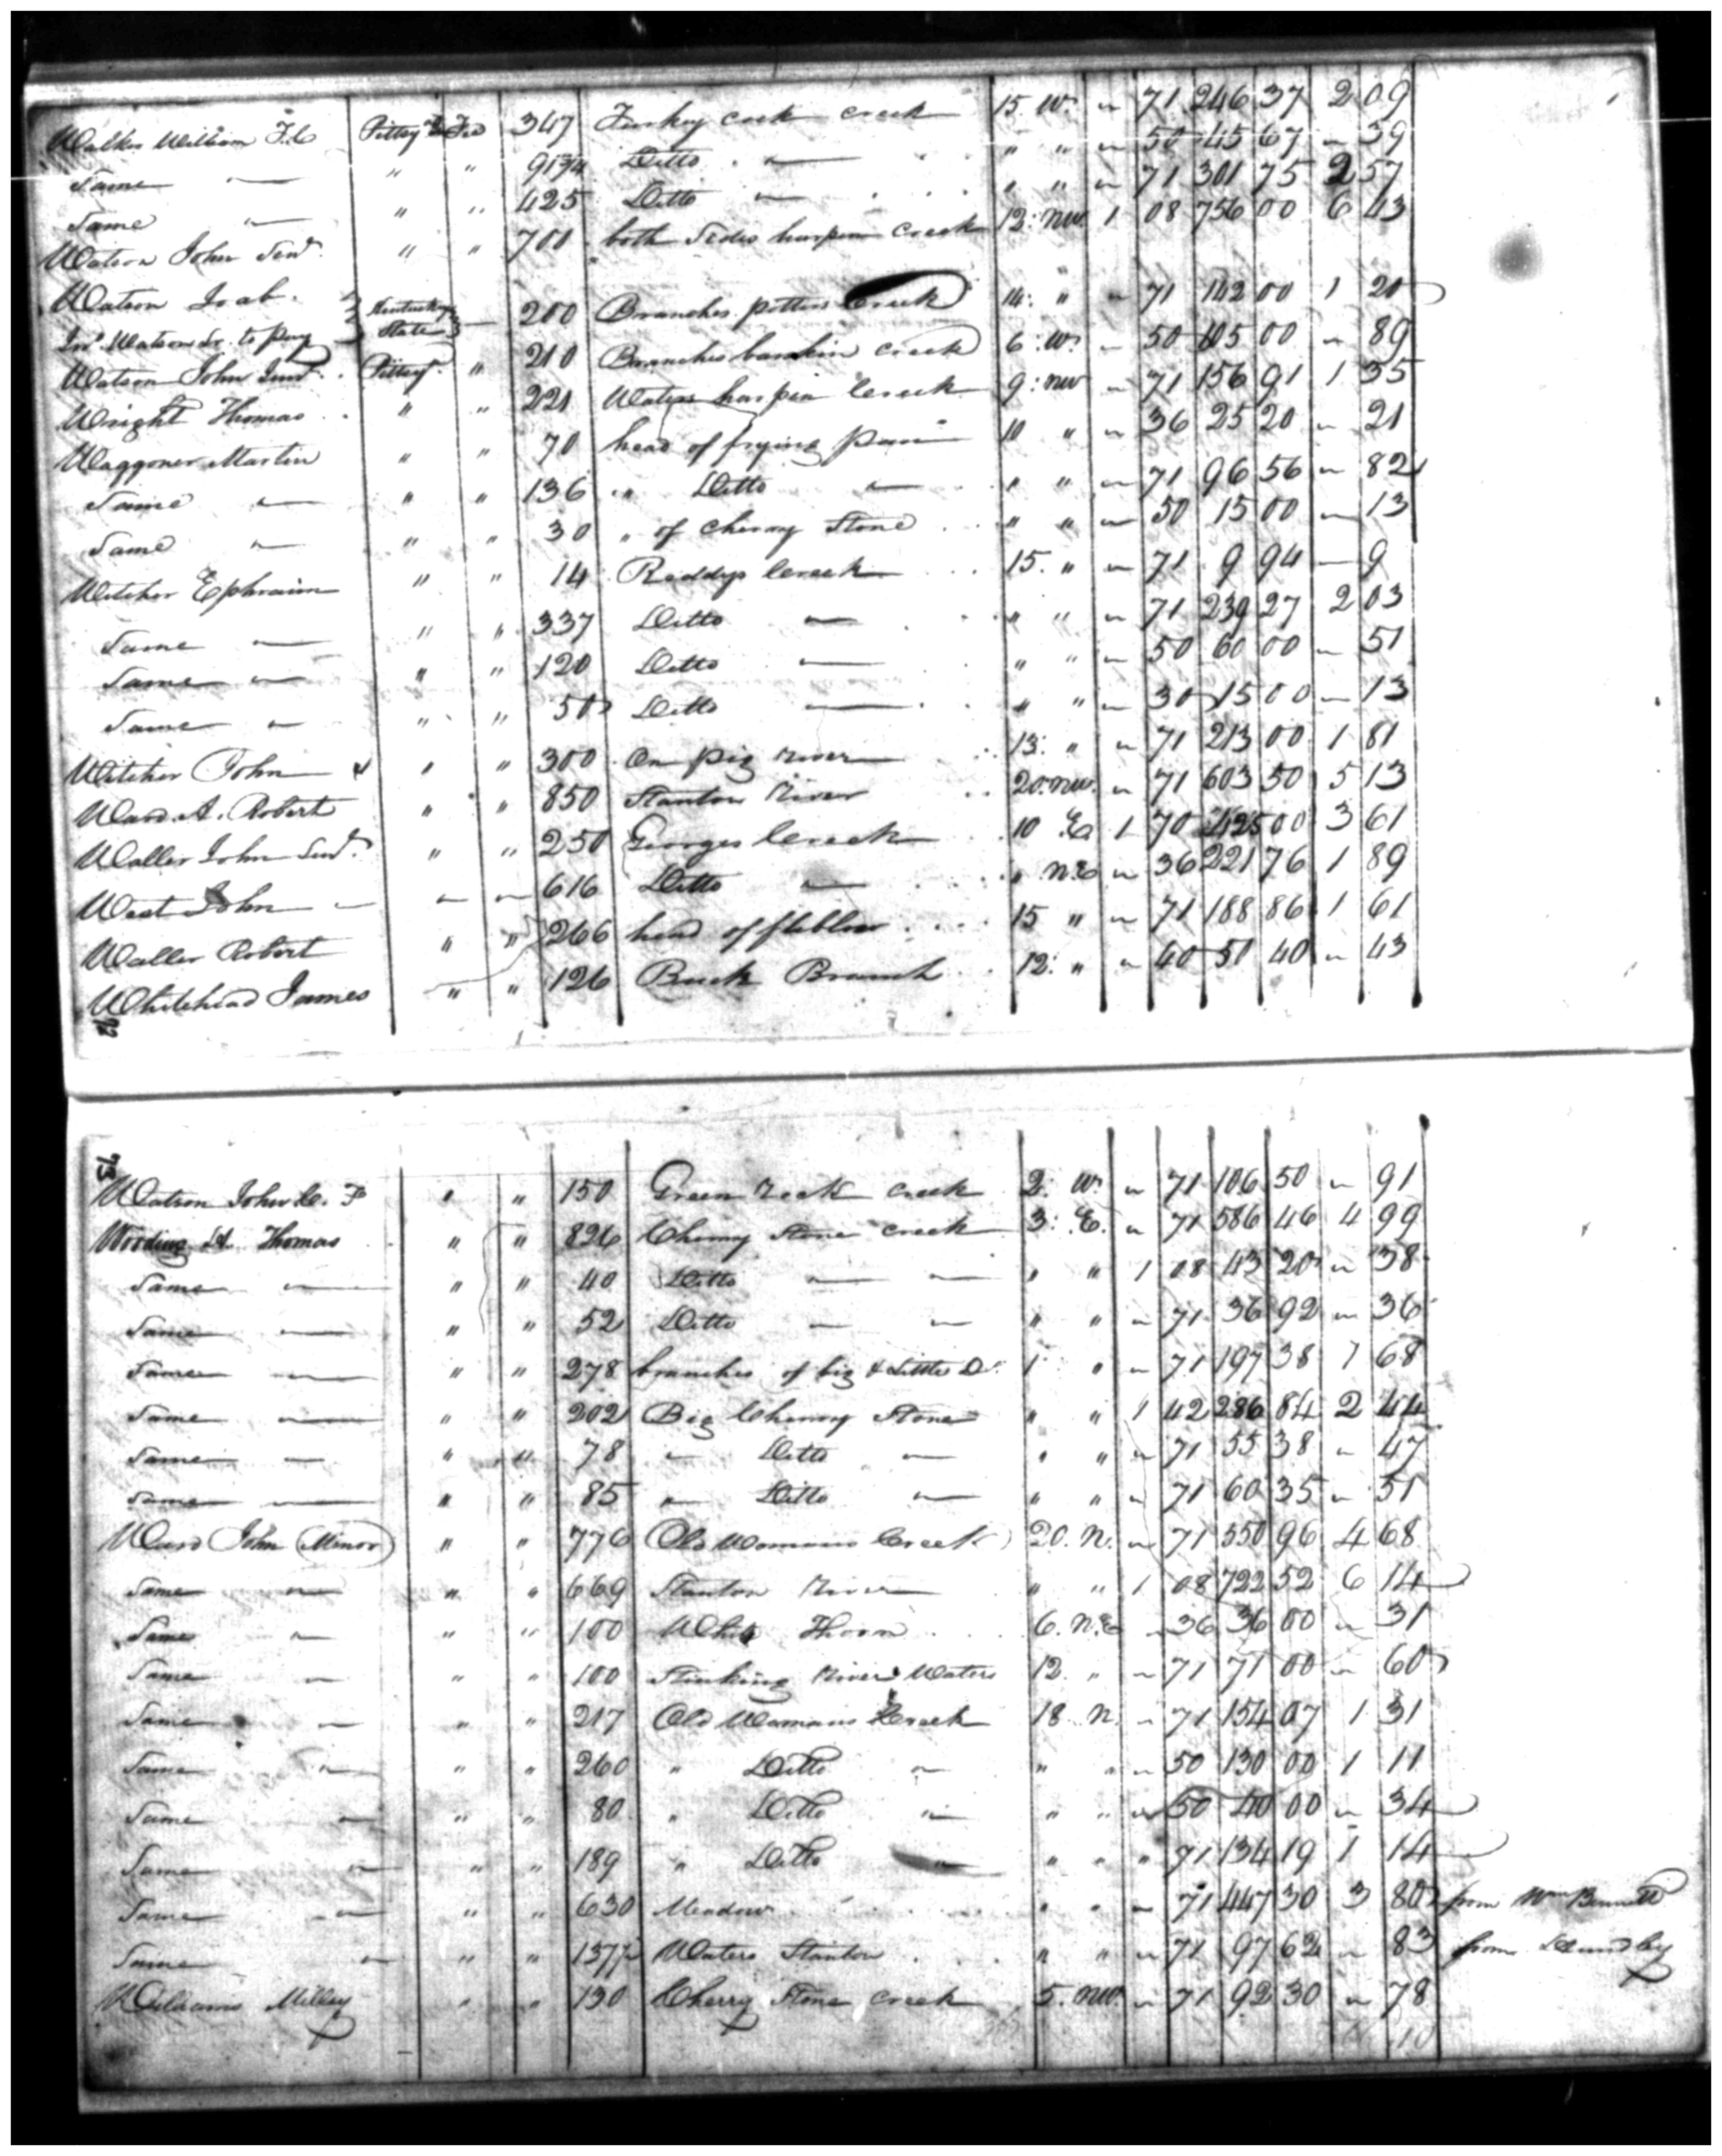 Walker William T. C Pittsyl Fee 347 Turkey cock creek 15. W. " 71 246 37 2 09
Same " " " 91 3/4 Ditto " " " " 50 45 67 " 39
Same " " " 425 Ditto " " " " 71 301 75 2 57
Watson John Senr. " " 700 both Sides harpin Creek 12: NW 1 08 756 00 6 43
Watson Joab. Kentucky 200 Branches potters Creek 14: " " 71 142 00 1 20
Jno. Watson Sr. to pay State
Watson John Junr. Pittsyl. " 210 Branches creek 6: W. " 50 105 00 " 89
Wright Thomas " " 221 Waters harpin Creek 9: NW " 71 156 91 1 35
Waggoner Martin " " 70 head of frying pan 10 " " 36 25 20 " 21
Same " " " 136 " Ditto " " " " 71 96 56 " 82
Same " " " 30 " of cherry Stone " " " 50 15 00 " 13
Witcher Ephraim " " 14 Reddys Creek 15. " " 71 9 94 — 9
Same — " " 337 Ditto — " " " 71 239 27 2 03
Same " " " 120 Ditto — " " " 50 60 00 " 51
Same " " " 50 Ditto — " " " 30 15 00 " 13
Witcher John " " 300 on pig River 13: " " 71 213 00 1 81
Ward. A. Robert " " 850 Stanton River 20. NW. " 71 603 50 5 13
Waller John Senr. " " 250 Georges Creek 10 E 1 70 425 00 3 61
West John " " " 616 Ditto " " N.E " 36 221 76 1 89
Waller Robert " " 266 head of 15 " " 71 188 86 1 61
Whitehead James " " 126 Buck Branch 12: " " 40 50 40 " 43
72
73
Watson John C. F " " 150 Green rock creek 2: W. " 71 106 50 " 91
Wooding H. Thomas " " 826 Cherry Stone creek 3: E. " 71 586 46 4 99
Same — " " 40 Ditto — — " " 1 08 43 20 " 38
Same — " " 52 Ditto — — " " " 71 36 92 " 36
Same — " " 278 branches of big & Little Do. 1 " " 71 197 38 1 68
Same — " " 202 Big Cherry Stone " " 1 42 286 84 2 44
Same — " " 78 " Ditto — " " " 71 55 38 " 47
Same — " " 85 " Ditto — " " " 71 60 35 " 51
Ward John (Minor) " " 776 Old Womans Creek 20. N. " 71 550 96 4 68
Same " " " 669 Stanton River " " 1 08 722 52 6 14
Same " " " 100 White Thorn 6. N.E " 36 36 00 " 31
Same " " " 100 Stinking River Waters 12. " " 71 71 00 " 60
Same " " " 217 Old Womans Creek 18 N. " 71 154 07 1 31
Same " " " 260 " Ditto " " " " 50 130 00 1 11
Same " " " 80 " Ditto " " " " 50 40 00 " 34
Same " " " 189 " Ditto " " " " 71 134 19 1 14
Same " " " 630 Meadow " " " 71 447 30 3 80 from Wm Bennett
Same " " " 137 1/2 Waters Stanton " " " 71 97 62 " 83 from Hundley
Williams Milley " " 130 Cherry Stone creek 5. NW. " 71 92 30 " 78